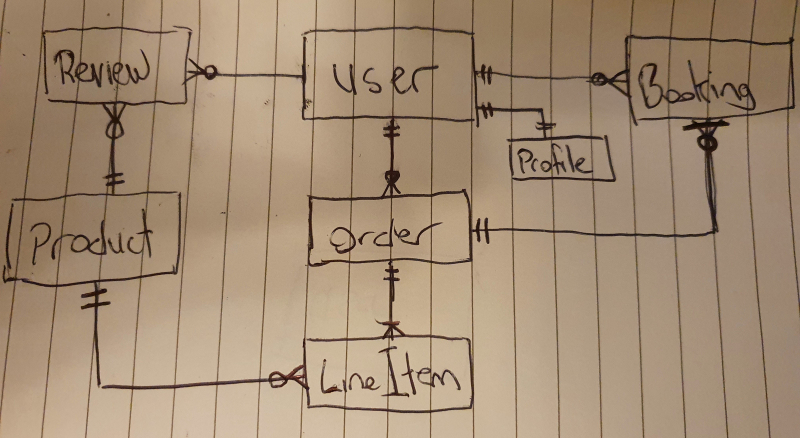 Review
User
Booking
Profile
Product
Order
LineItem